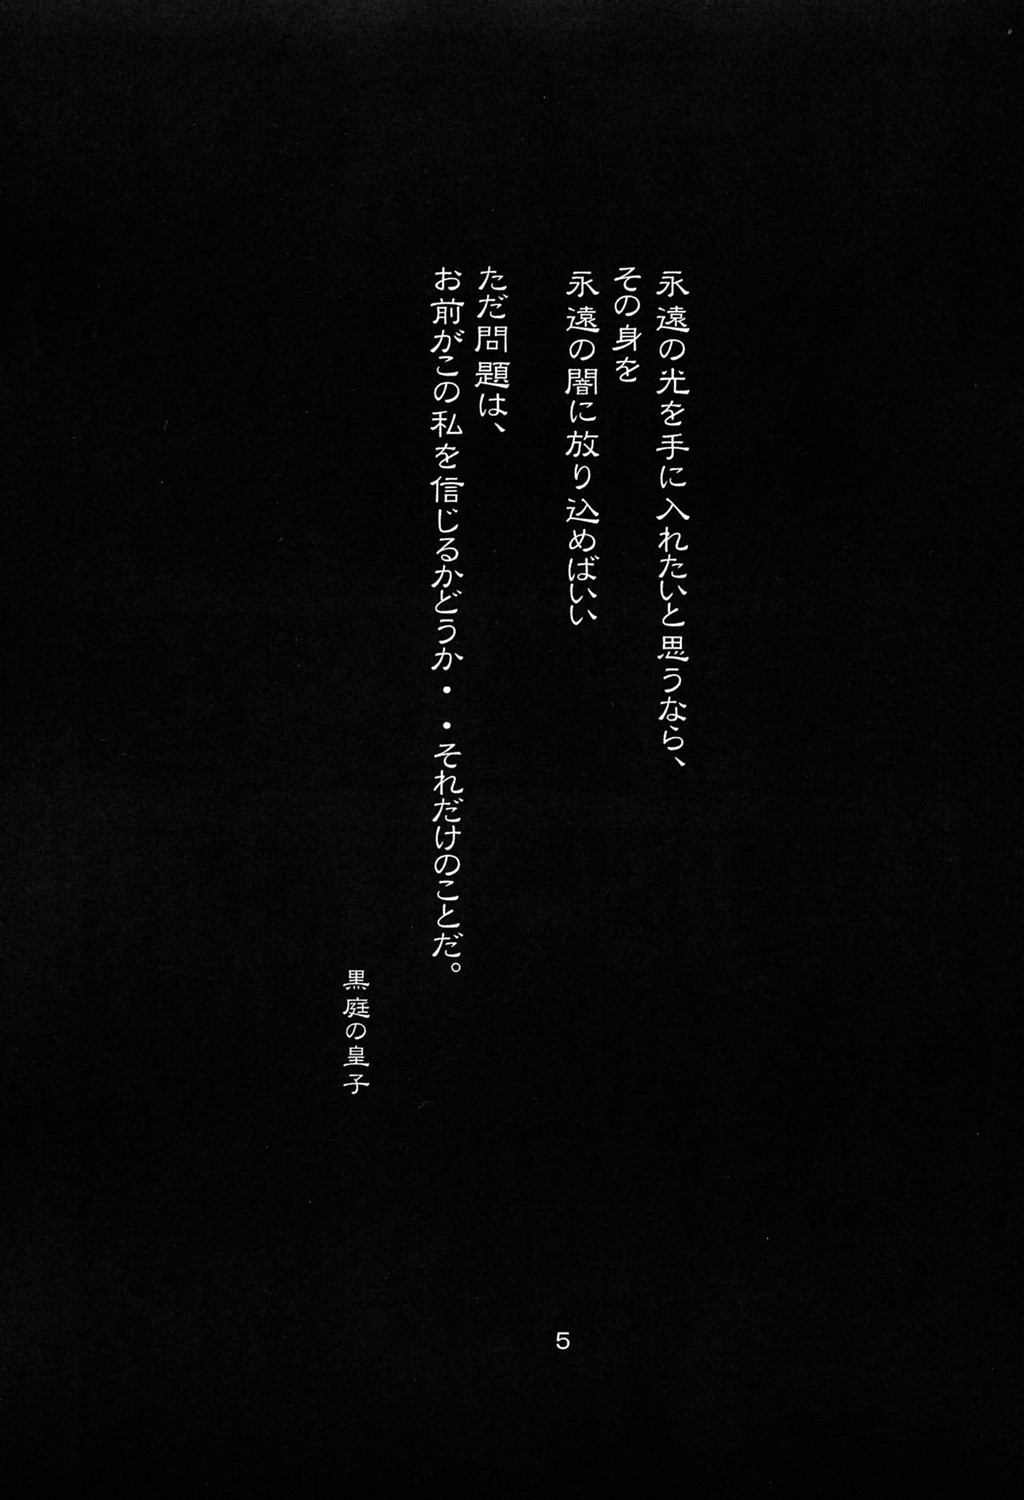 永遠の光を手に入れたいと思うなら、
その身を
永遠の闇に放り込めばいい
ただ問題は、
お前がこの私を信じるかどうか・・それだけのことだ。
黒庭の皇子
5